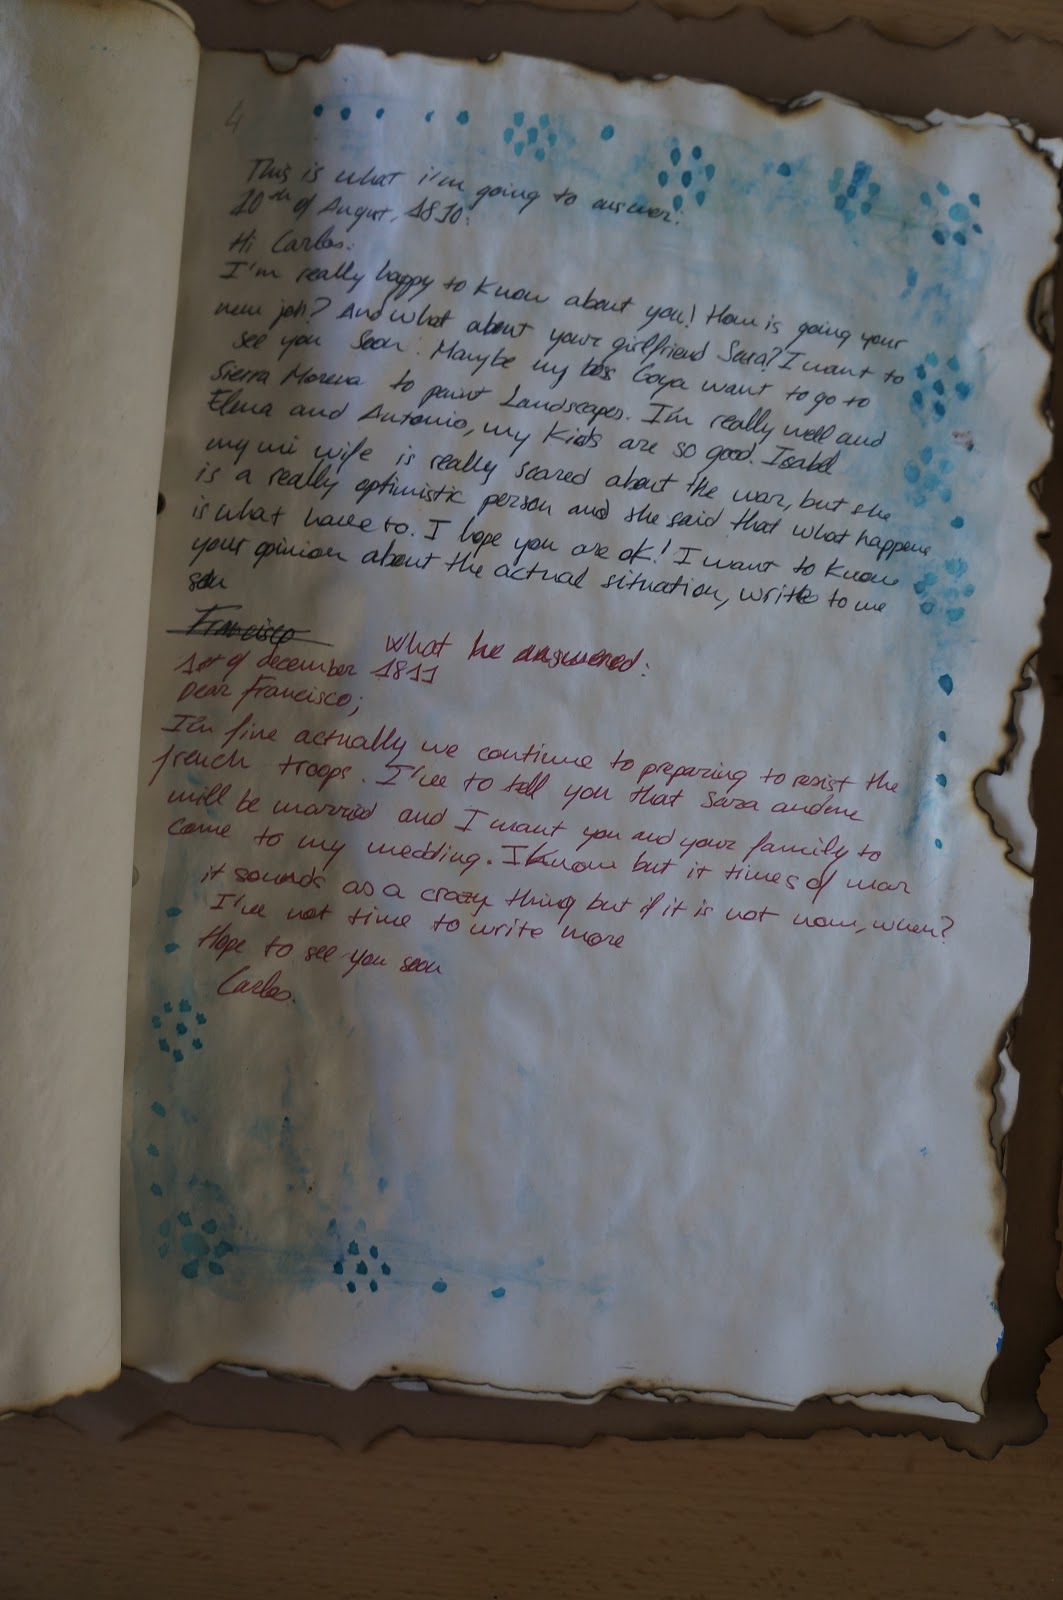 4
This is what i'm going to answer:
10th of August, 1810:
Hi Carlos:
I'm really happy to know about you! How is going your
new job? And what about your girlfriend Sara? I want to
see you soon. Maybe my bos Goya want to go to
Sierra Morena to paint Landscapes. I'm really well and
Elena and Antonio, my kids are so good. Isabel
my mi wife is really scared about the war, but she
is a really optimistic person and she said that what happens
is what have to. I hope you are ok! I want to know
your opinion about the actual situation, write to me
soon
Francisco
What he answered:
1st of december 1811
Dear Francisco;
I'm fine actually we continue to preparing to resist the
french troops. I've to tell you that Sara and me
will be married and I want you and your family to
come to my wedding. I know but it times of war
it sounds as a crazy thing but if it is not now, when?
I've not time to write more
Hope to see you soon
Carlos.